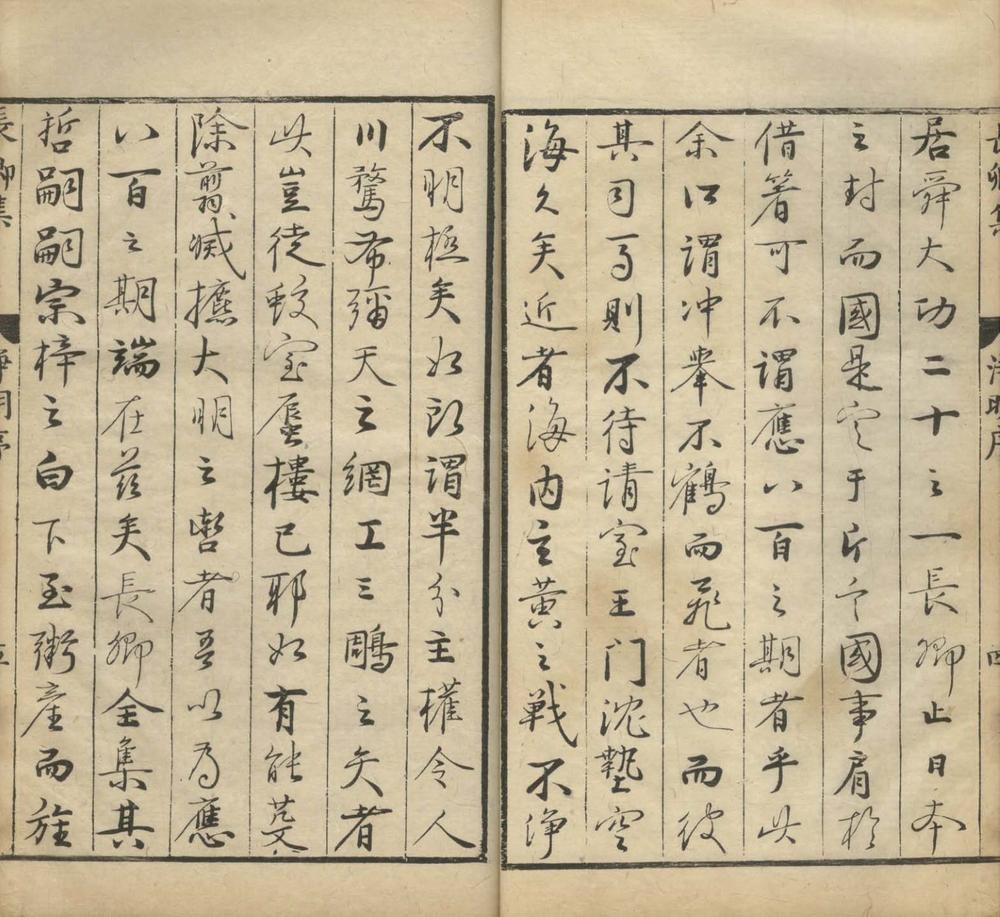 居舜大功二十之一長卿止日本
之封而國是定于片言國事肩於
借箸可不謂應八百之期者乎此
余所謂冲舉不鶴而飛者也而彼
其司馬則不待請室王門沈墊空
海久矣近者海內玄黃之戰不淨
不明極矣如所謂半分主權令人
川鶩希彌天之網工三鵰之矢者
此豈徒蛟室蜃樓已耶如有能芟
除翦滅攄大明之轡者吾以為應
八百之期端在茲矣長卿全集其
哲嗣嗣宗梓之白下至鬻產而旌
長卿集